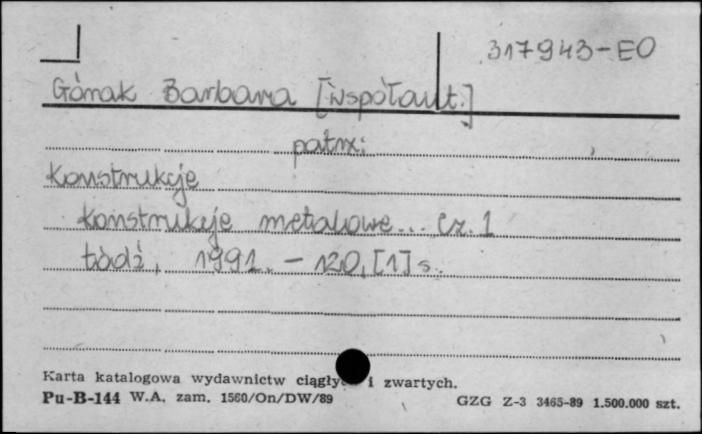 317943-EO
Górak Barbara [współaut.]
patrz:
Konstrukcje
Konstrukcje metalowe... Cz. 1
Łódź, 1991. - 120, [1] s.
Karta katalogowa wydawnictw ciągłych i zwartych.
Pu-B-144 W.A. zam. 1560/On/DW/89 GZG Z-3 3465-89 1.500.000 szt.